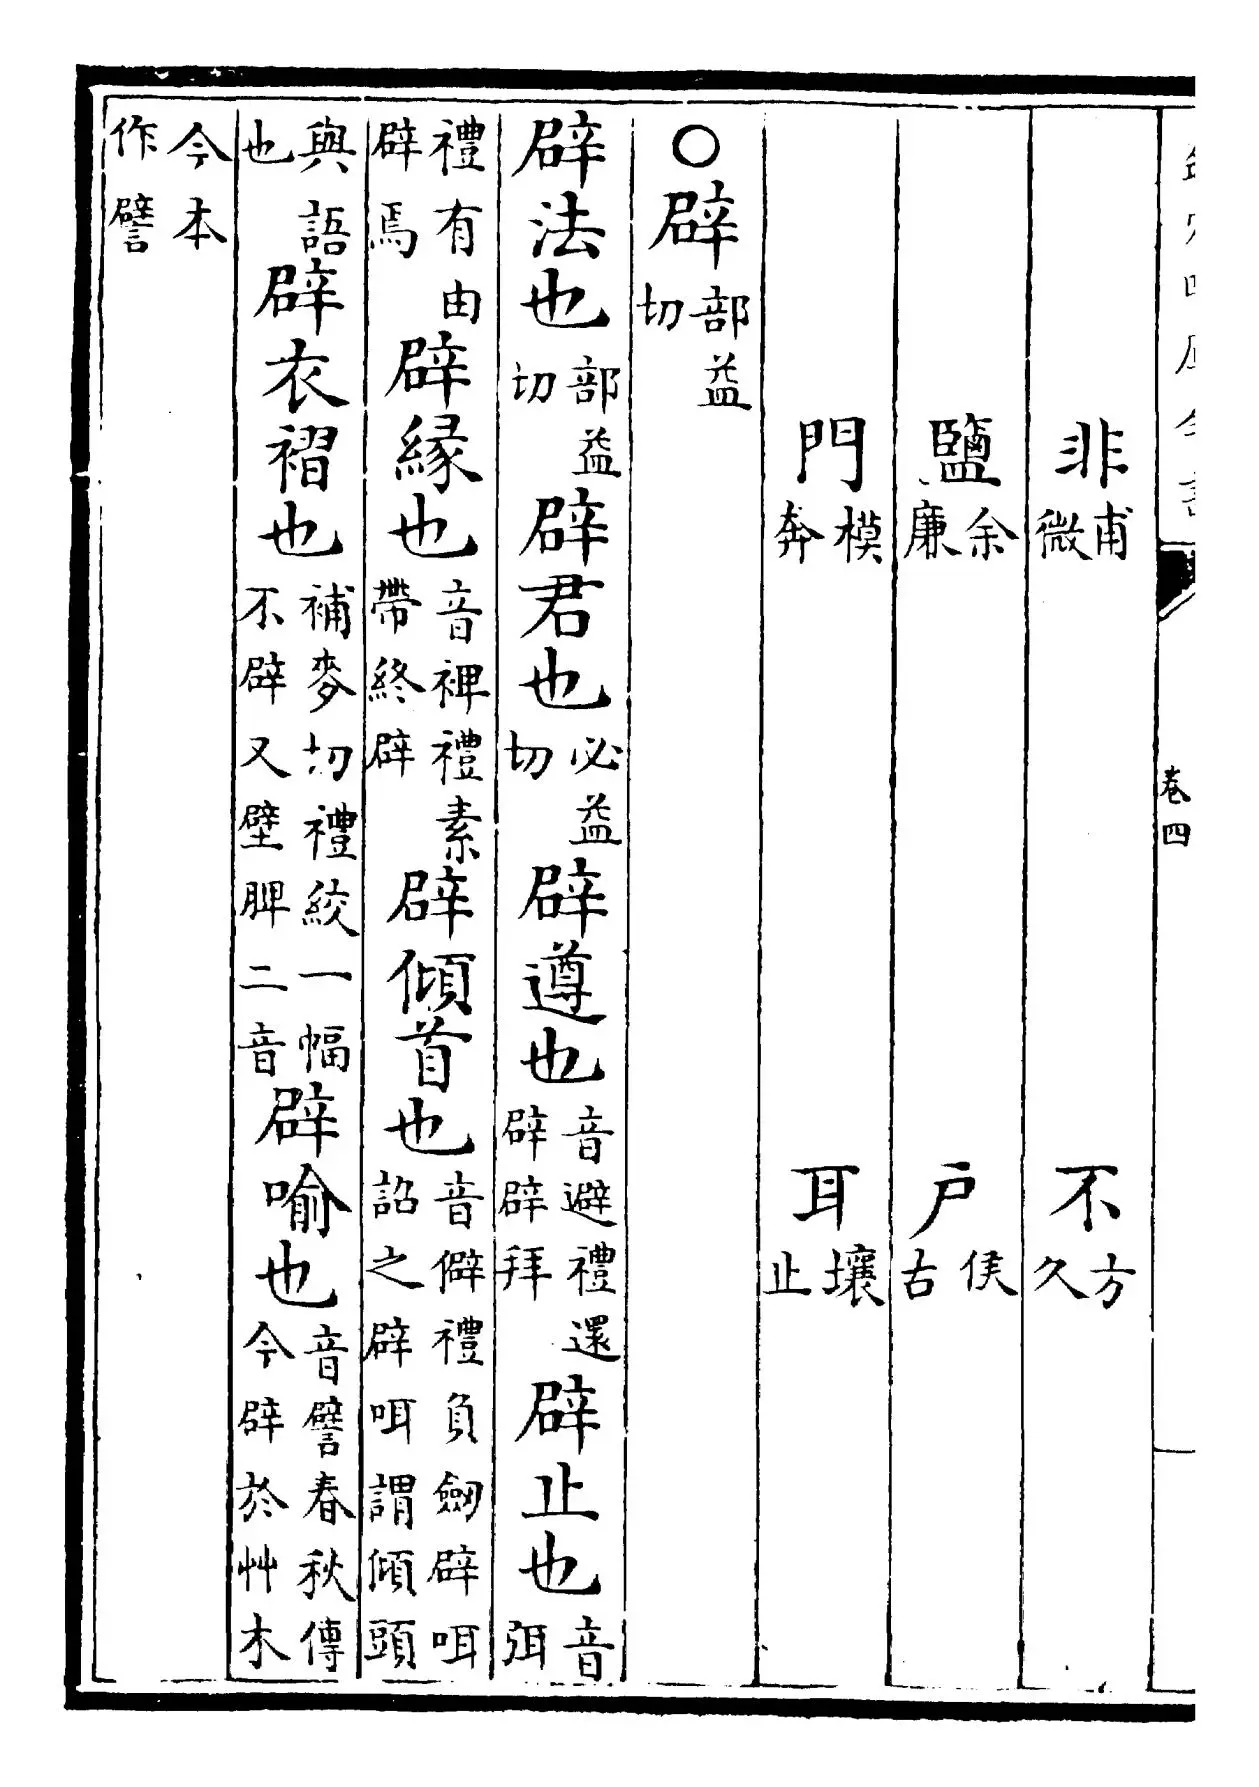 欽定四庫全書 卷四
非甫微 不方久
鹽余廉 戶侯古
門模奔 耳壤止
○辟部益切
辟法也部益切辟君也必益切辟遵也音避禮還辟辟拜辟止也音弭
禮有由辟焉辟緣也音裨禮素帶終辟辟傾首也音僻禮負劒辟咡詔之辟咡謂傾頭
與語也辟衣褶也補麥切禮絞一幅不辟又壁脾二音辟喻也音譬春秋傳今辟於艸木
今本作譬